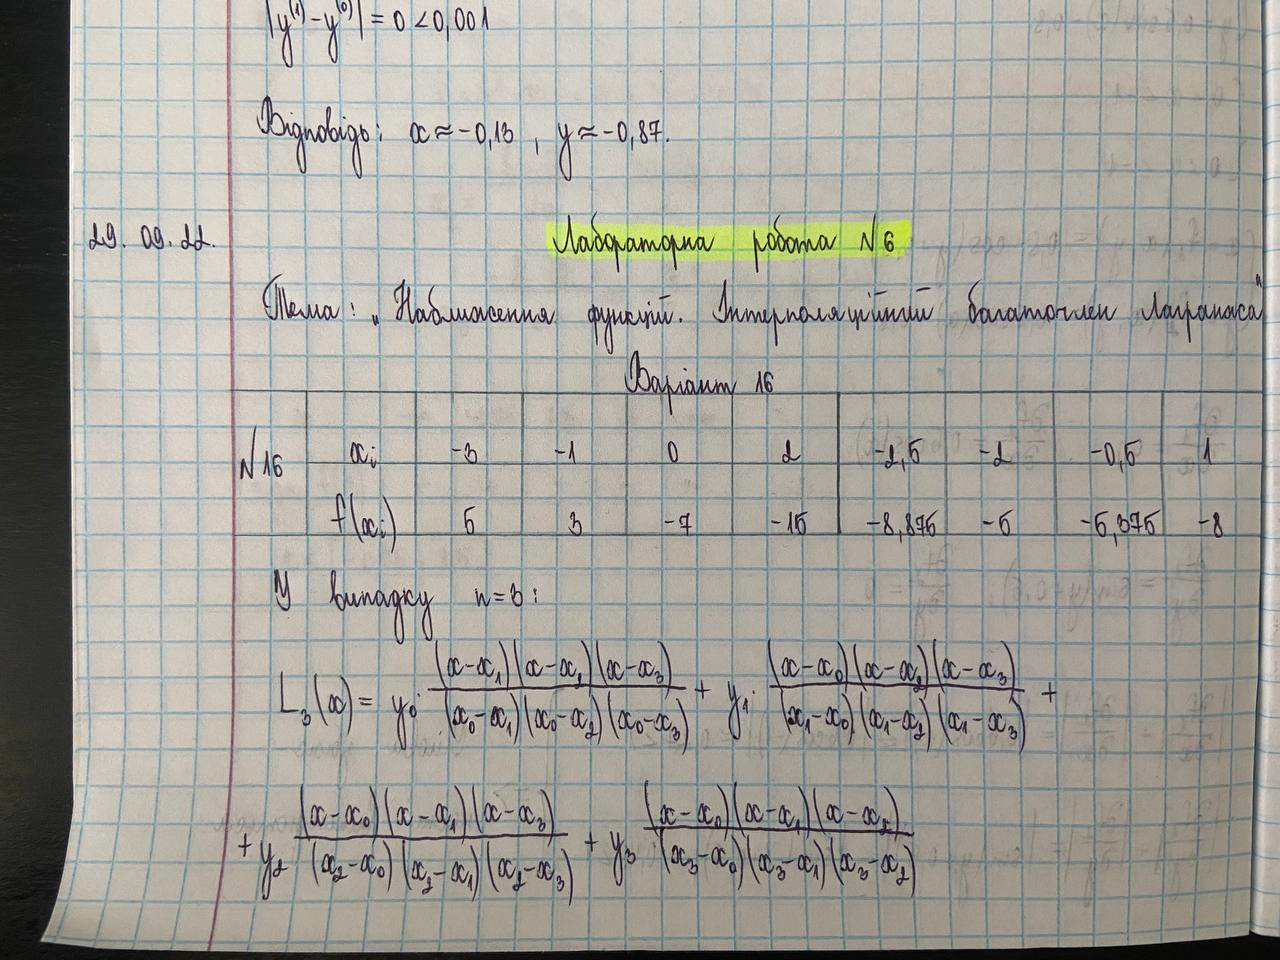 |y⁽¹⁾-y⁽⁰⁾| = 0 < 0,001
Відповідь: x ≈ -0,13 , y ≈ -0,87.
29. 09. 22.
Лабораторна робота N6
Тема: „Наближення функцій. Інтерполяційний багаточлен Лагранжа"
Варіант 16
N16 xᵢ -3 -1 0 2 -2,5 -2 -0,5 1
f(xᵢ) 5 3 -7 -15 -8,875 -5 -5,375 -8
У випадку n=3:
L₃(x) = y₀· (x-x₁)(x-x₂)(x-x₃) / (x₀-x₁)(x₀-x₂)(x₀-x₃) + y₁· (x-x₀)(x-x₂)(x-x₃) / (x₁-x₀)(x₁-x₂)(x₁-x₃) +
+ y₂ (x-x₀)(x-x₁)(x-x₃) / (x₂-x₀)(x₂-x₁)(x₂-x₃) + y₃ (x-x₀)(x-x₁)(x-x₂) / (x₃-x₀)(x₃-x₁)(x₃-x₂)